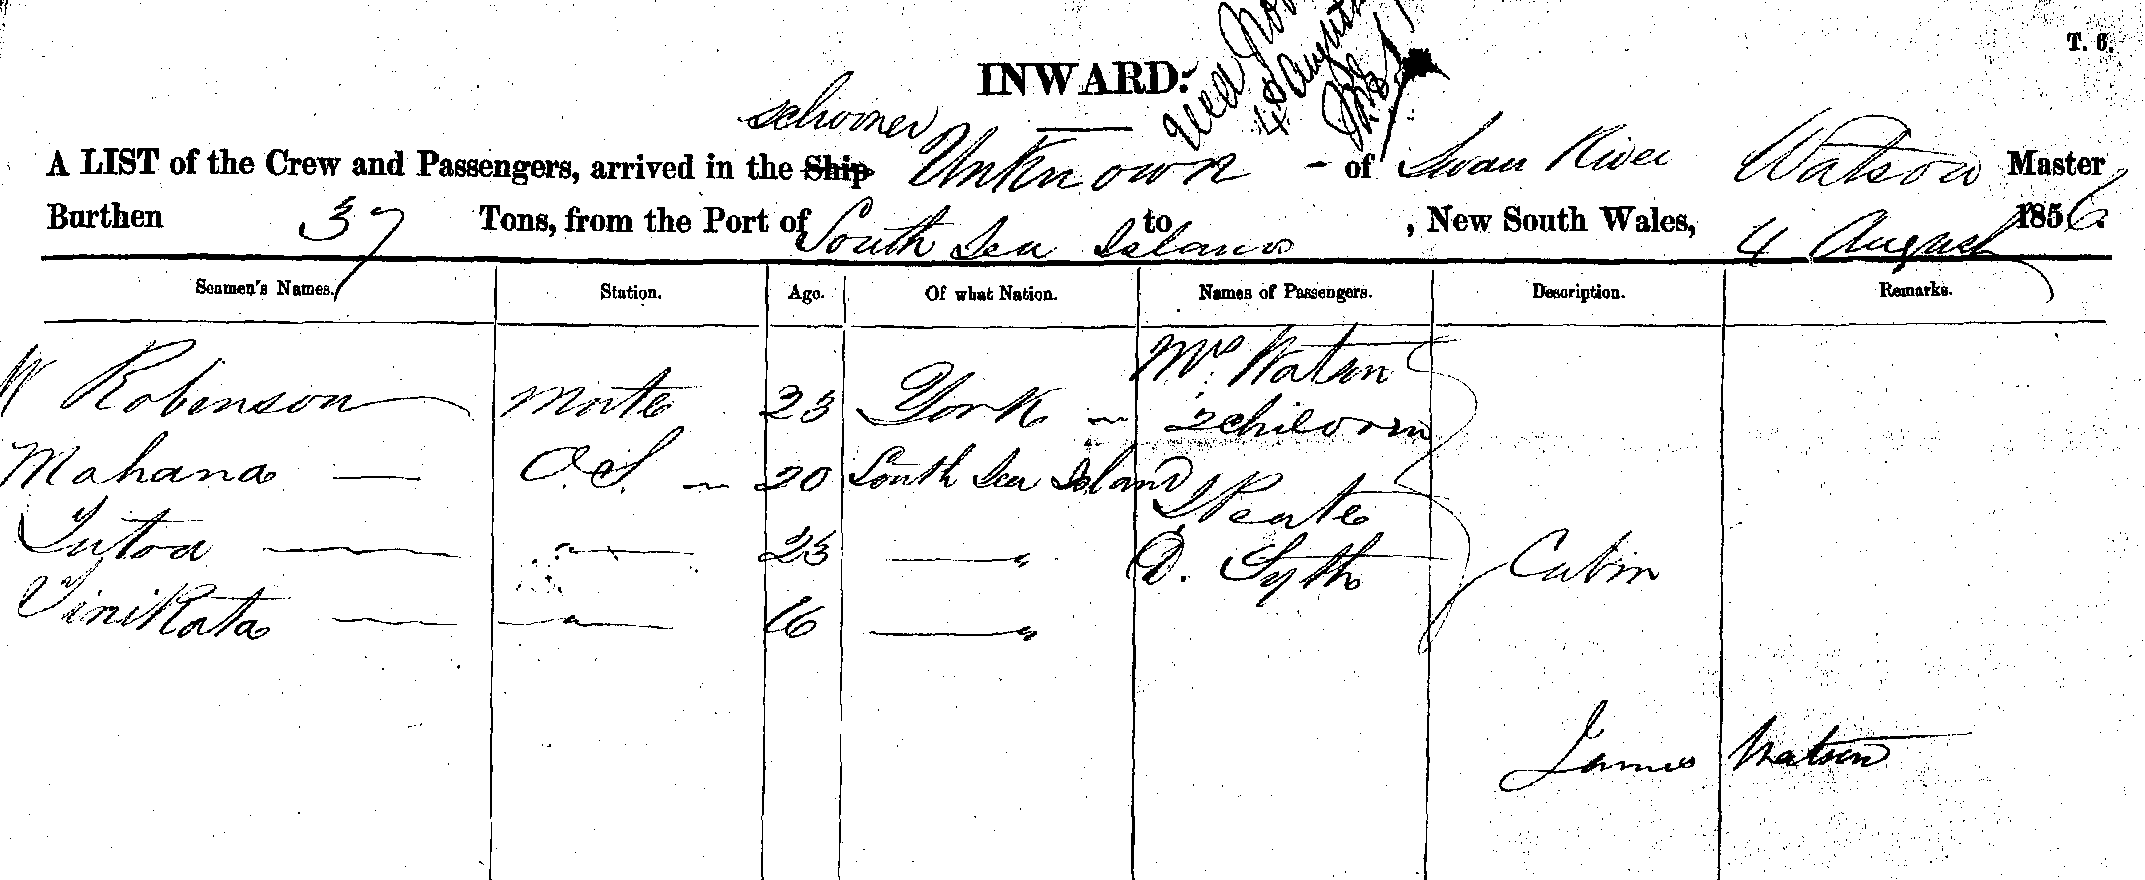 T. 6.
INWARD:
4 August
schooner
A LIST of the Crew and Passengers, arrived in the Ship Unknown - of Swan River Watson Master
Burthen 37 Tons, from the Port of South Sea Islands to , New South Wales, 4 August 1856.
Seamen's Names. Station. Age. Of what Nation. Names of Passengers. Description. Remarks.
W Robinson Mate 23 York Mrs Watson
2 children
Mahana — O.S. 20 South Sea Island
Tutoa — " — 23 — " D. Syth Cabin
Tinirata — " — 16 — "
James Watson